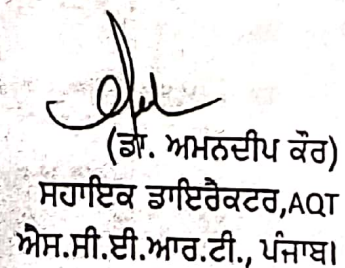 (ਡਾ. ਅਮਨਦੀਪ ਕੌਰ)
ਸਹਾਇਕ ਡਾਇਰੈਕਟਰ,AQT
ਐਸ.ਸੀ.ਈ.ਆਰ.ਟੀ., ਪੰਜਾਬ।